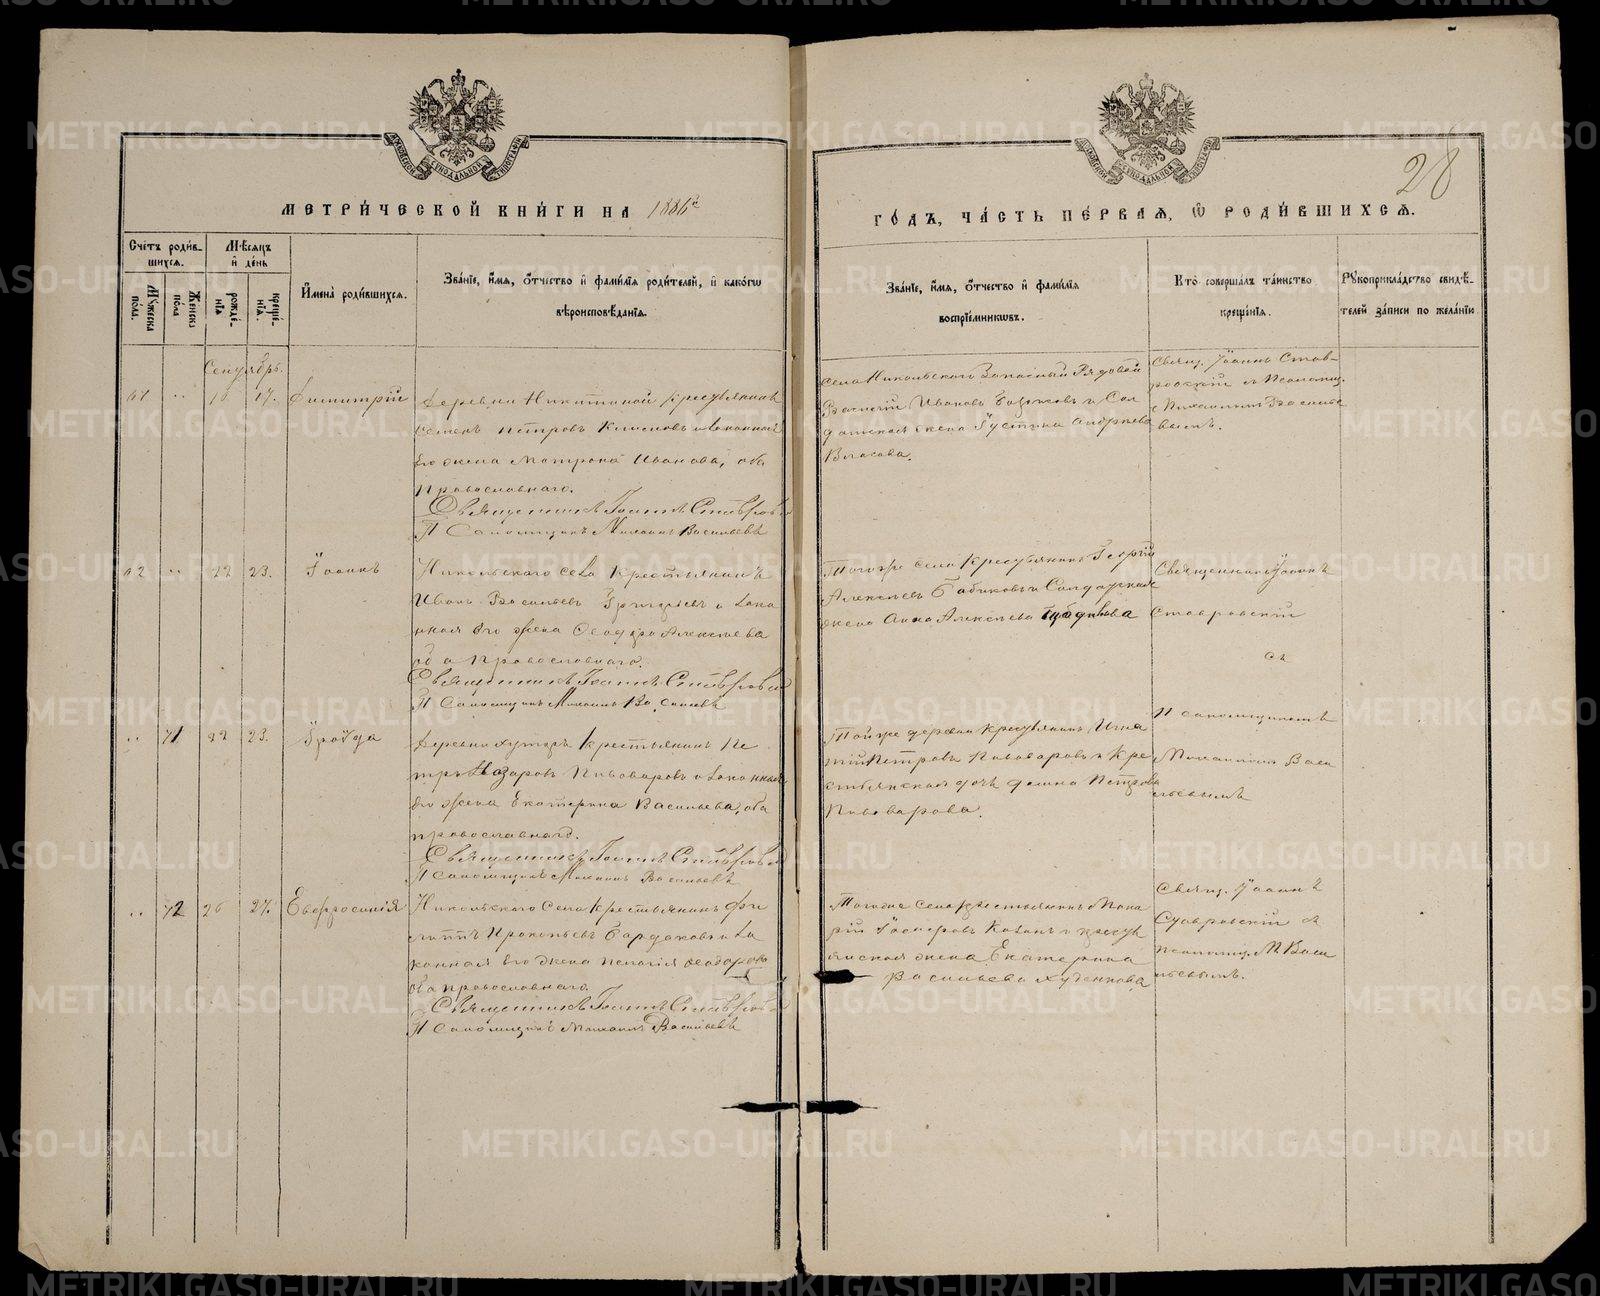 МЕТРИ́ЧЕСКОЙ КНИ́ГИ НА 1886й
ГО́ДЪ, ЧА́СТЬ ПЕ́РВАѦ, Ѡ҆ РОДИ́ВШИХСѦ.
28
Сче́тъ роди́в-
шихся.
Му́жеска по́ла.
Же́нска по́ла
Мѣ́сяцъ
и҆ де́нь
рожде́-
нія
креще́-
нія.
И҆мена̀ роди́вшихся.
Зва́нїе, и҆́мя, ѻ҆́тчество и҆ фами́лїя роди́телей, и҆ како́гѡ
вѣроисповѣ́данїя.
Зва́нїе, и҆́мя, ѻ҆́тчество и҆ фами́лїя
воспрїе́мникѡвъ.
Кто̀ соверша́лъ та́инство
креще́нїя.
Рꙋкоприкла́дство свидѣ́-
телей за́писи по жела́нїю
Сентябрь.
61 " 16 17. Димитрій
Деревни Никитиной крестьянинъ
Семенъ Петровъ и законная
его жена Матрона Иванова, оба
православнаго.
Священникъ Іоаннъ Ставровскій
Псаломщикъ Михаилъ Васильевъ
села Никольскаго Запасный Рядовой
Василій Ивановъ и Сол
датская жена Іустина Андреева
Власова.
Священ. Іоаннъ Став-
ровскій съ Псаломщ.
Михаиломъ Василье
вымъ.
62 " 22 23. Іоаннъ
Никольскаго села крестьянинъ
Иванъ Васильевъ и зако
нная его жена Ѳеодора Алексѣева
оба православнаго.
Священникъ Іоаннъ Ставровскій
Псаломщикъ Михаилъ Васильевъ
Тогоже села крестьянинъ Георгій
Алексѣевъ Бабиковъ и Солдатская
жена Анна Алексѣева
Священникъ Іоаннъ
Ставровскій
съ
" 71 22 23. Іраида
Деревни Хуторъ крестьянинъ Пе
тръ Назаровъ Пивоваровъ и законная
его жена Екатерина Васильева, оба
православнаго.
Священникъ Іоаннъ Ставровскій
Псаломщикъ Михаилъ Васильевъ
Тойже деревни крестьянинъ Игна
тій Петровъ Пивоваровъ и Кре
стьянская дочь Петрова
Пивоварова.
Псаломщикомъ
Михаиломъ Васи
льевымъ
" 72 26 27. Евфросинія
Никольскаго Села крестьянинъ Фи
липпъ Прокопьевъ и за
конная его жена Пелагія Ѳеодорова
оба православнаго
Священникъ Іоаннъ Ставровскій
Псаломщикъ Михаилъ Васильевъ
Тогоже села крестьянинъ Мака
рій и кресть
янская жена Екатерина
Васильева Худенкова
Священ. Іоаннъ
Ставровскій съ
псаломщ. М. Васи
льевымъ.
METRIKI.GASO-URAL.RU